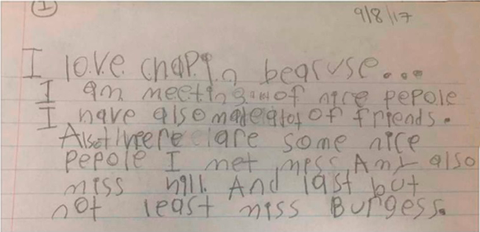 ①
9/8/17
I love chapin bearuse....
I am meeting of nice pepole
I have also made alot of friends.
Also there are some nice
pepole I met miss And also
miss hill And last but
not least miss Burgess.